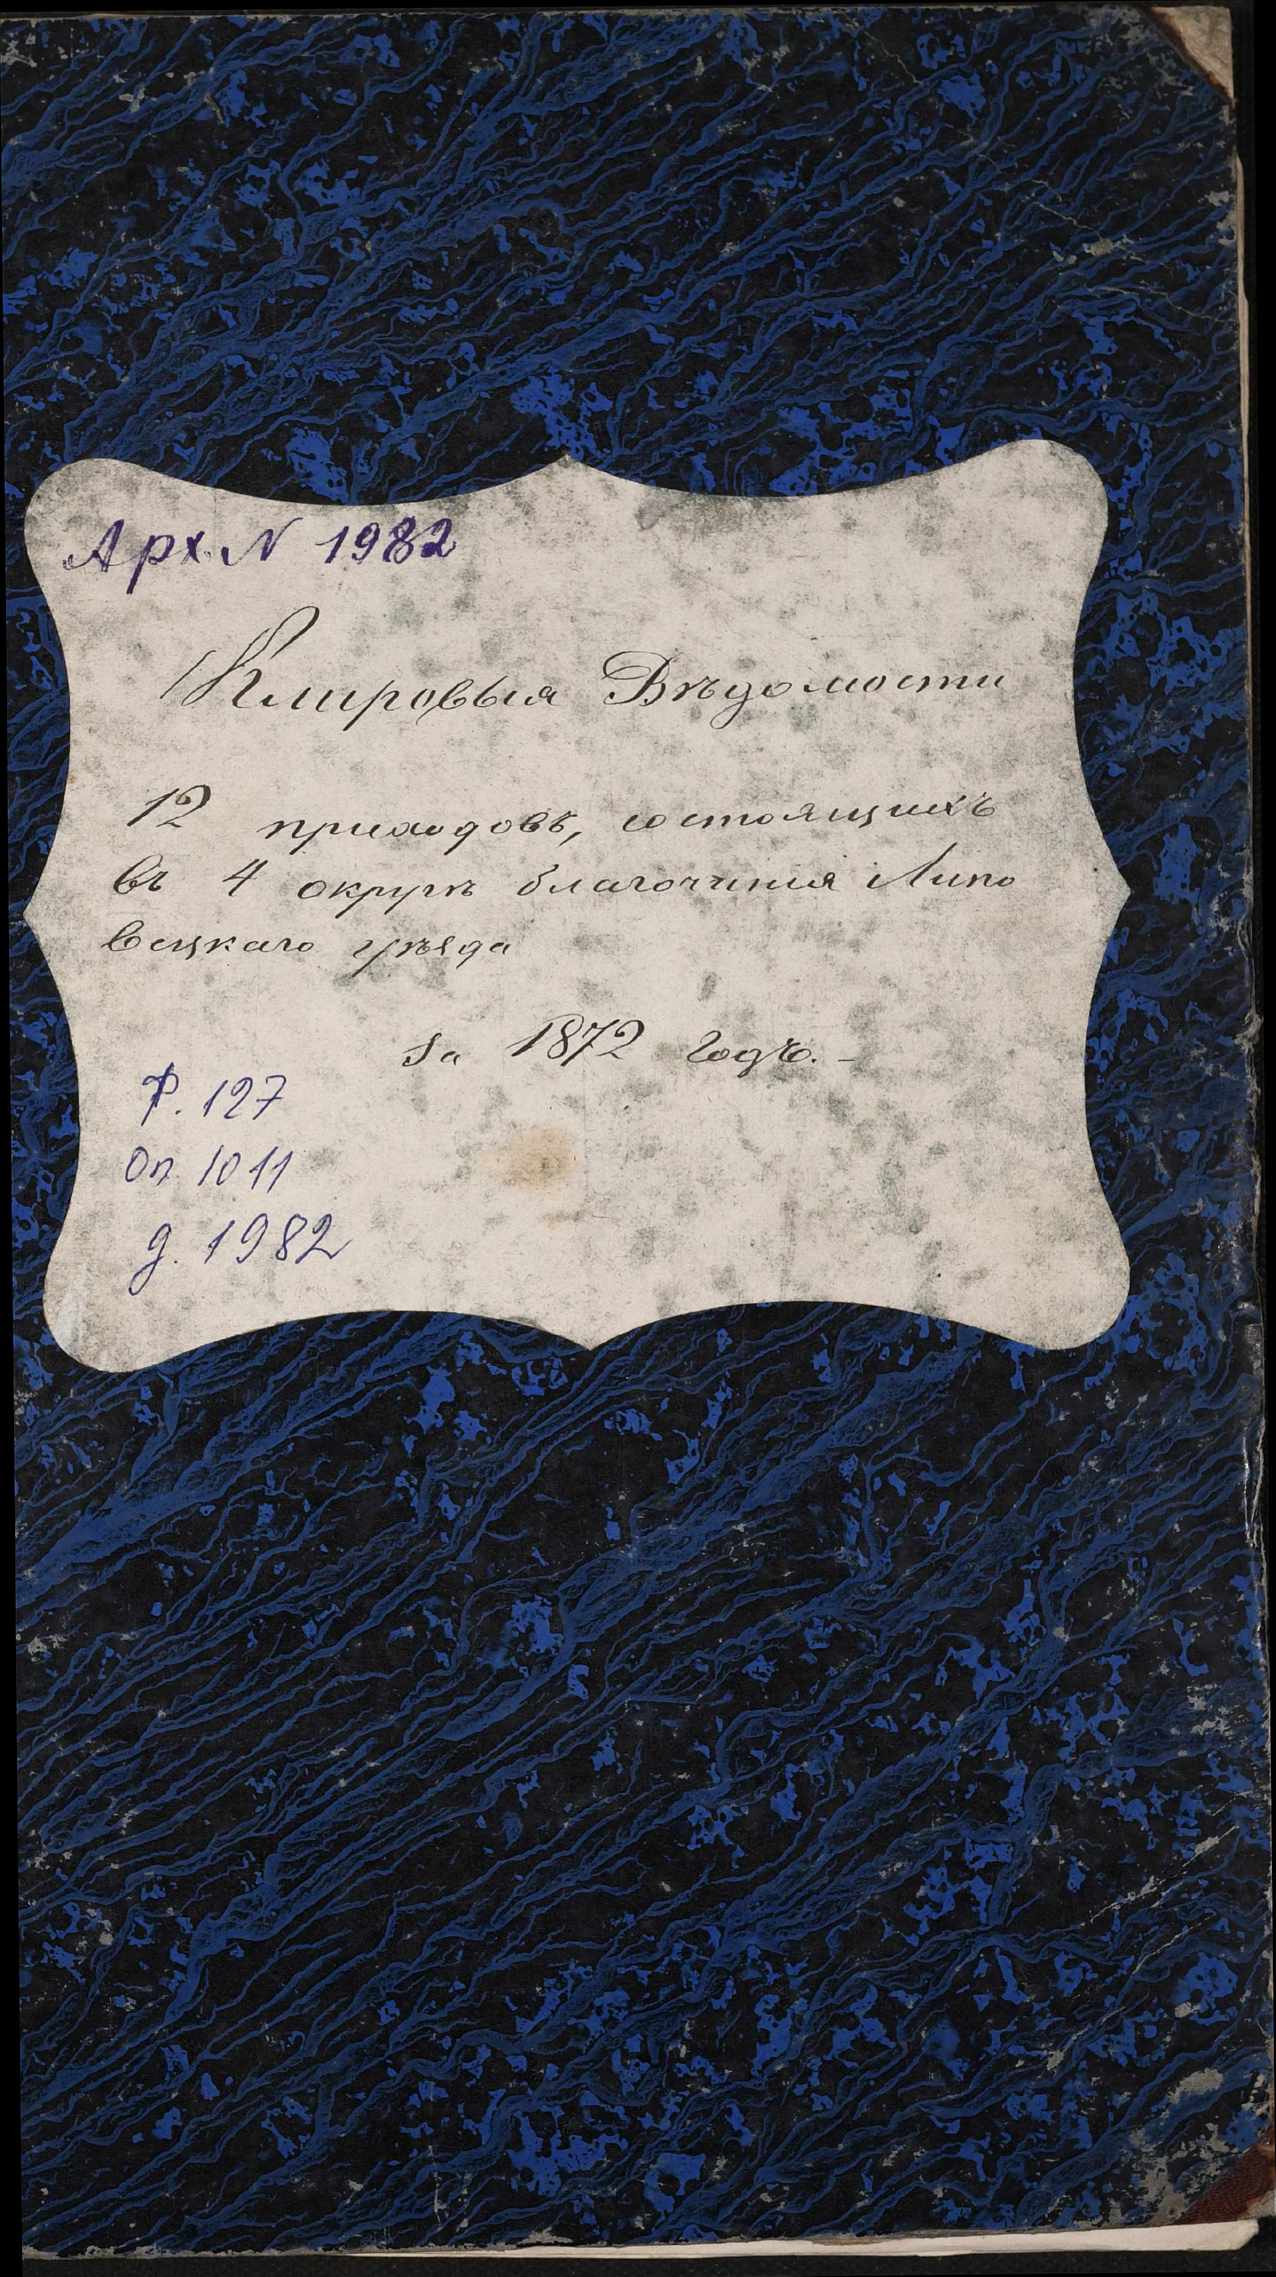 Арх. N 1982
Клировыя Вѣдомости
12 приходовъ, состоящихъ
въ 4 округѣ благочинія Липо
вецкаго уѣзда
за 1872 годъ. –
Ф. 127
Оп 1011
д. 1982